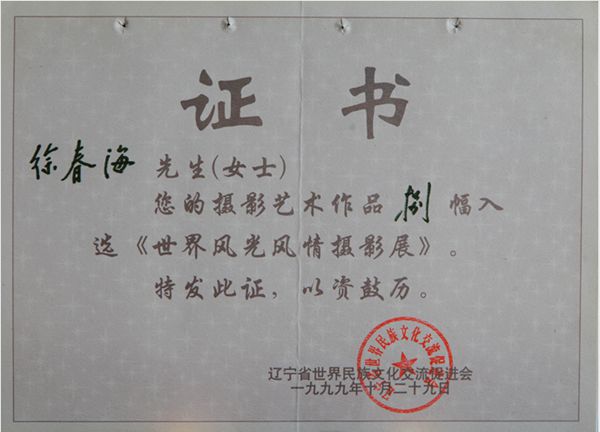 证 书
徐春海 先生(女士)
您的摄影艺术作品 捌 幅入
选《世界风光风情摄影展》。
特发此证，以资鼓历。
辽宁省世界民族文化交流促进会
一九九九年十月二十九日
世界民族文化交流促进会